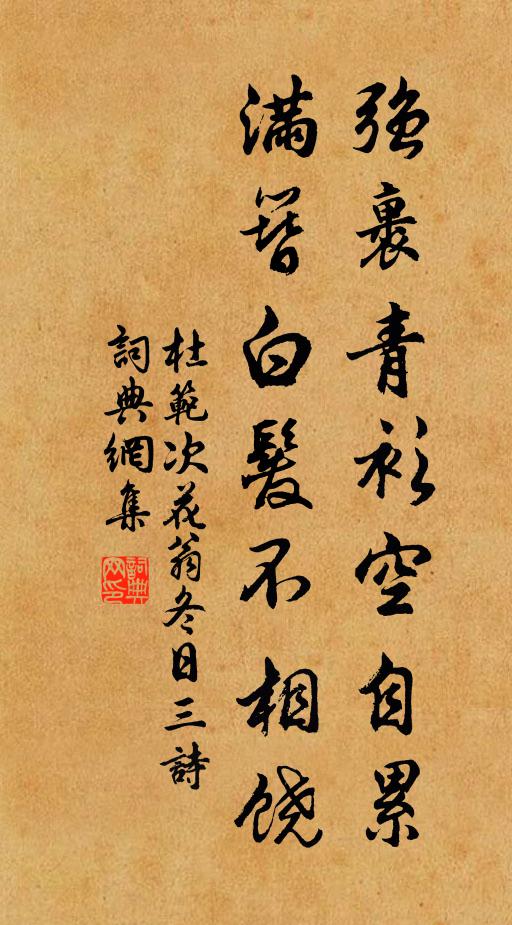 強裹青衫空自累
滿簪白髮不相饒
杜範次花翁冬日三詩
詞典網集
詞典网印